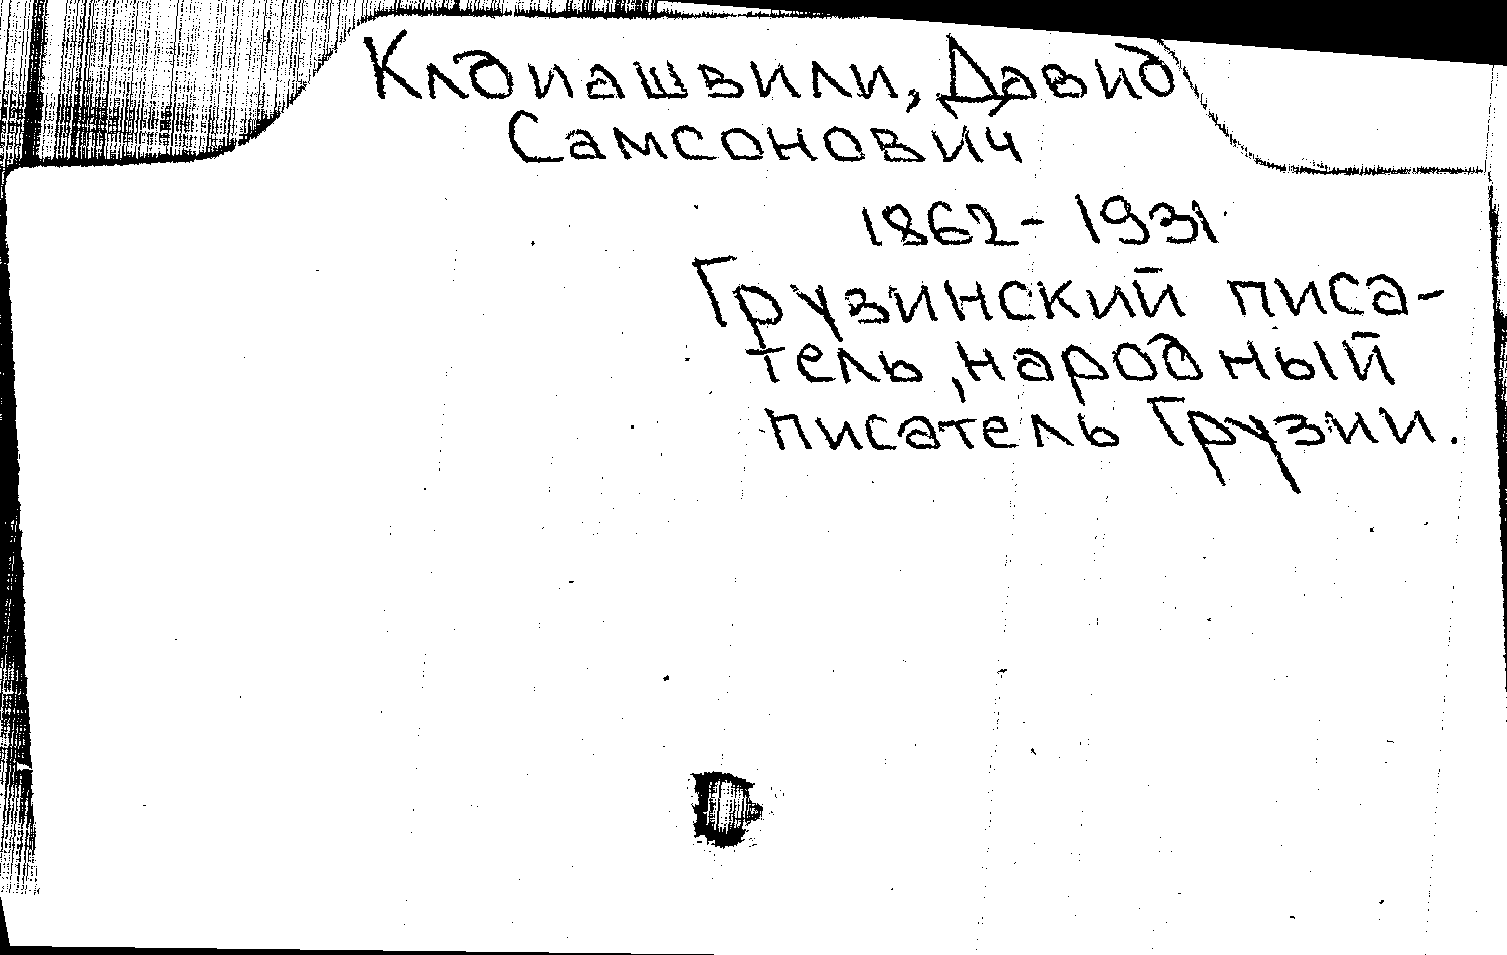 Клдиашвили, Давид
Самсонович
1862- 1931
Грузинский писа-
тель, народный
писатель Грузии.